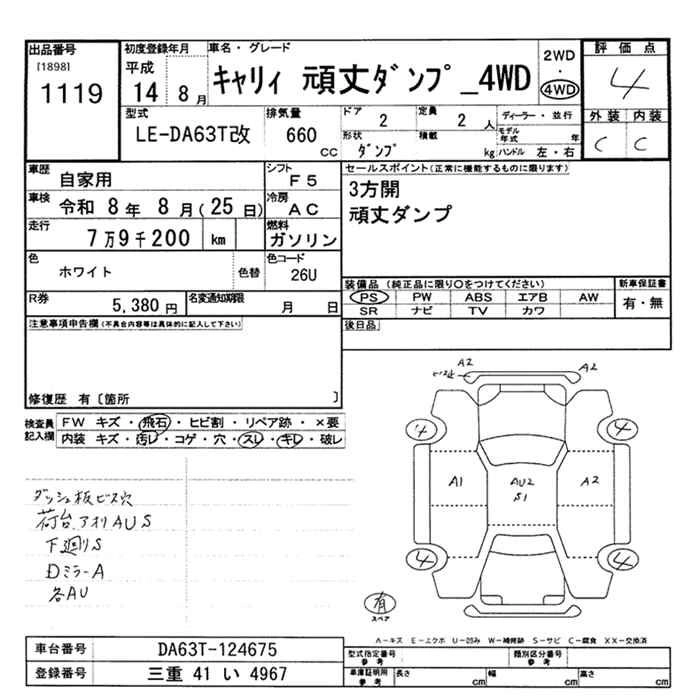 出品番号
[1898]
1119
初度登録年月
平成
14 8月
車名・グレード
キャリィ 頑丈ダンプ_4WD
2WD
・
4WD
評価点
4
外装 内装
C C
型式
LE-DA63T改
排気量
660
CC
ドア
2
定員
2人
形状
ダンプ
積載
kg
ディーラー・並行
モデル年式 年
ハンドル 左・右
車歴
自家用
シフト
F5
車検
令和 8年 8月(25日)
冷房
AC
走行
7万9千200 km
燃料
ガソリン
色
ホワイト
色替
色コード
26U
R券
5,380円
名変通知期限
月 日
セールスポイント(正常に機能するものに限ります)
3方開
頑丈ダンプ
装備品(純正品に限り○をつけてください)
新車保証書
PS PW ABS エアB AW
有・無
SR ナビ TV カワ
後日品
注意事項申告欄(不具合内容等は具体的に記入して下さい)
修復歴 有〔箇所 〕
検査員記入欄
FW キズ・飛石・ヒビ割・リペア跡・×要
内装 キズ・汚レ・コゲ・穴・スレ・キレ・破レ
ダッシュ板ビス穴
荷台.アオリAUS
下廻りS
Dミラ-A
各AU
A2
A2
4
4
A1
AU2
S1
A2
4
4
有
スペア
A-キズ E-エクボ U-凹み W-補修跡 S-サビ C-腐食 XX-交換済
車台番号
DA63T-124675
登録番号
三重 41 い 4967
型式指定番号
参考
類別区分番号
参考
車庫証明用
参考
長さ cm
幅 cm
高さ cm